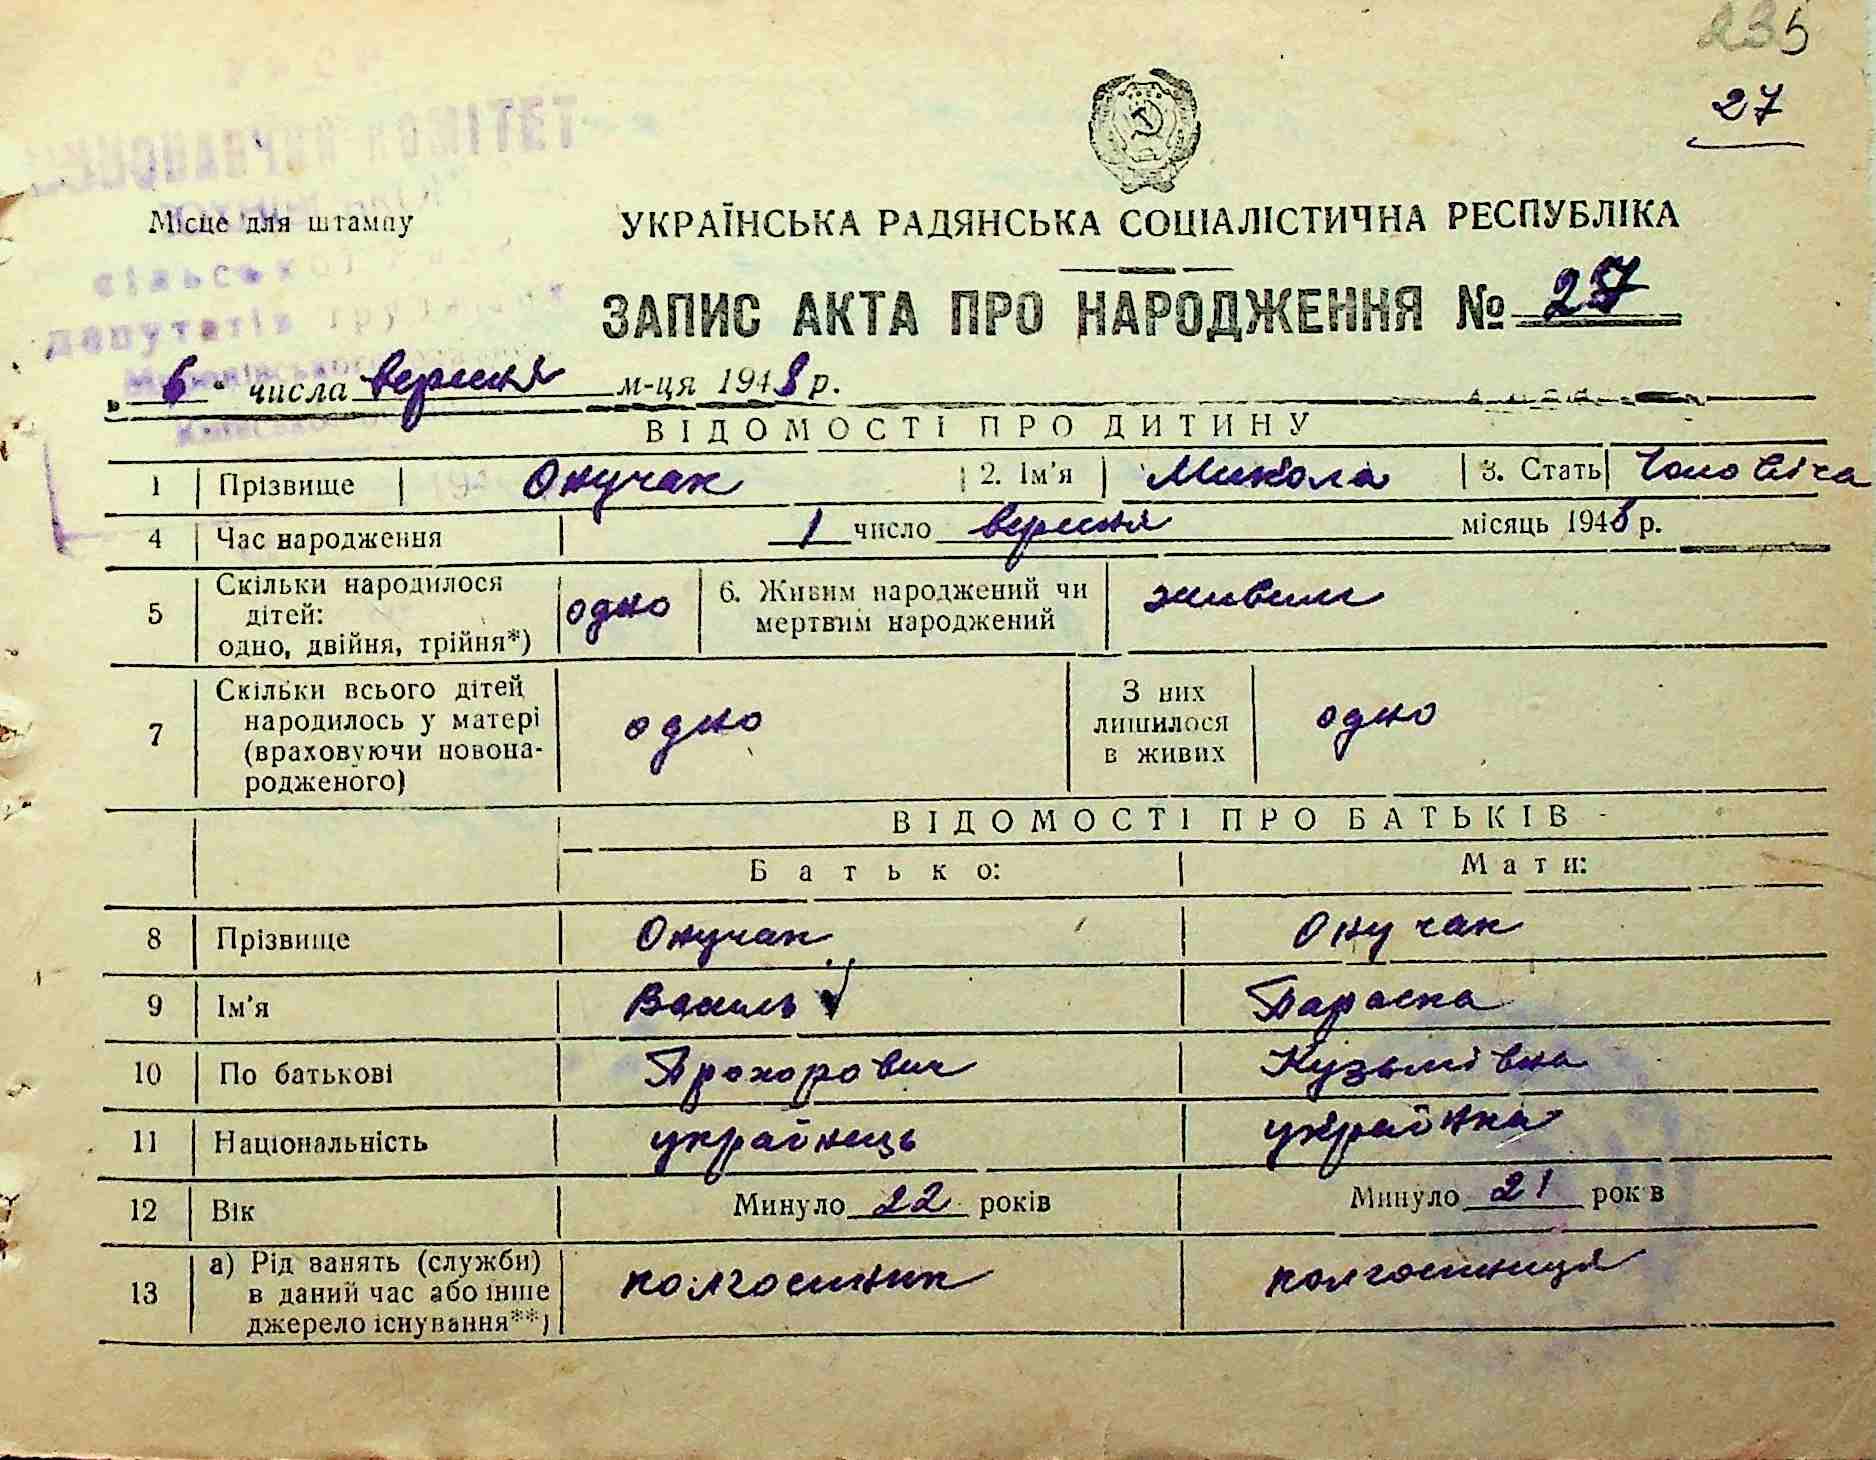 235
27
ВИКОНАВЧИЙ КОМІТЕТ
Місце для штампу
сільської
депутатів
УКРАЇНСЬКА РАДЯНСЬКА СОЦІАЛІСТИЧНА РЕСПУБЛІКА
ЗАПИС АКТА ПРО НАРОДЖЕННЯ № 27
„ 6 " числа вересня м-ця 1948 р.
ВІДОМОСТІ ПРО ДИТИНУ
1 Прізвище Онучак 2. Ім'я Микола 3. Стать Чоловіча
4 Час народження 1 число вересня місяць 1948 р.
5 Скільки народилося дітей: одно, двійня, трійня*) одно 6. Живим народжений чи мертвим народжений живим
7 Скільки всього дітей народилось у матері (враховуючи новонародженого) одно З них лишилося в живих одно
ВІДОМОСТІ ПРО БАТЬКІВ
Батько: Мати:
8 Прізвище Онучак Онучак
9 Ім'я Василь Параска
10 По батькові Прохорович Кузьмівна
11 Національність українець українка
12 Вік Минуло 22 років Минуло 21 років
13 а) Рід занять (служби) в даний час або інше джерело існування**) колгоспник колгоспниця